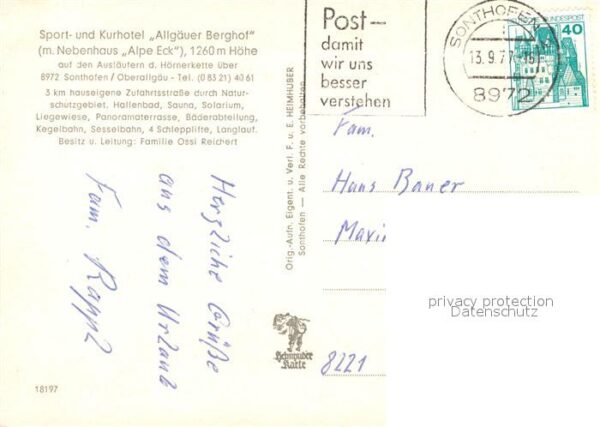 Sport- und Kurhotel „Allgäuer Berghof"
(m. Nebenhaus „Alpe Eck"), 1260 m Höhe
auf den Ausläufern d. Hörnerkette über
8972 Sonthofen / Oberallgäu - Tel. (0 83 21) 40 61
3 km hauseigene Zufahrtsstraße durch Natur-
schutzgebiet. Hallenbad, Sauna, Solarium,
Liegewiese, Panoramaterrasse, Bäderabteilung,
Kegelbahn, Sesselbahn, 4 Schlepplifte, Langlauf.
Besitz u. Leitung: Familie Ossi Reichert
Herzliche Grüße
aus dem Urlaub
Fam. Rappl
18197
Orig.-Aufn. Eigent. u. Verl. F. u. E. HEIMHUBER
Sonthofen — Alle Rechte vorbehalten
Post-
damit
wir uns
besser
verstehen
SONTHOFEN
13.9.77
8972
BUNDESPOST
40
Fam.
Hans Bauer
Maxi
8221
Heimhuber
Karte
privacy protection
Datenschutz